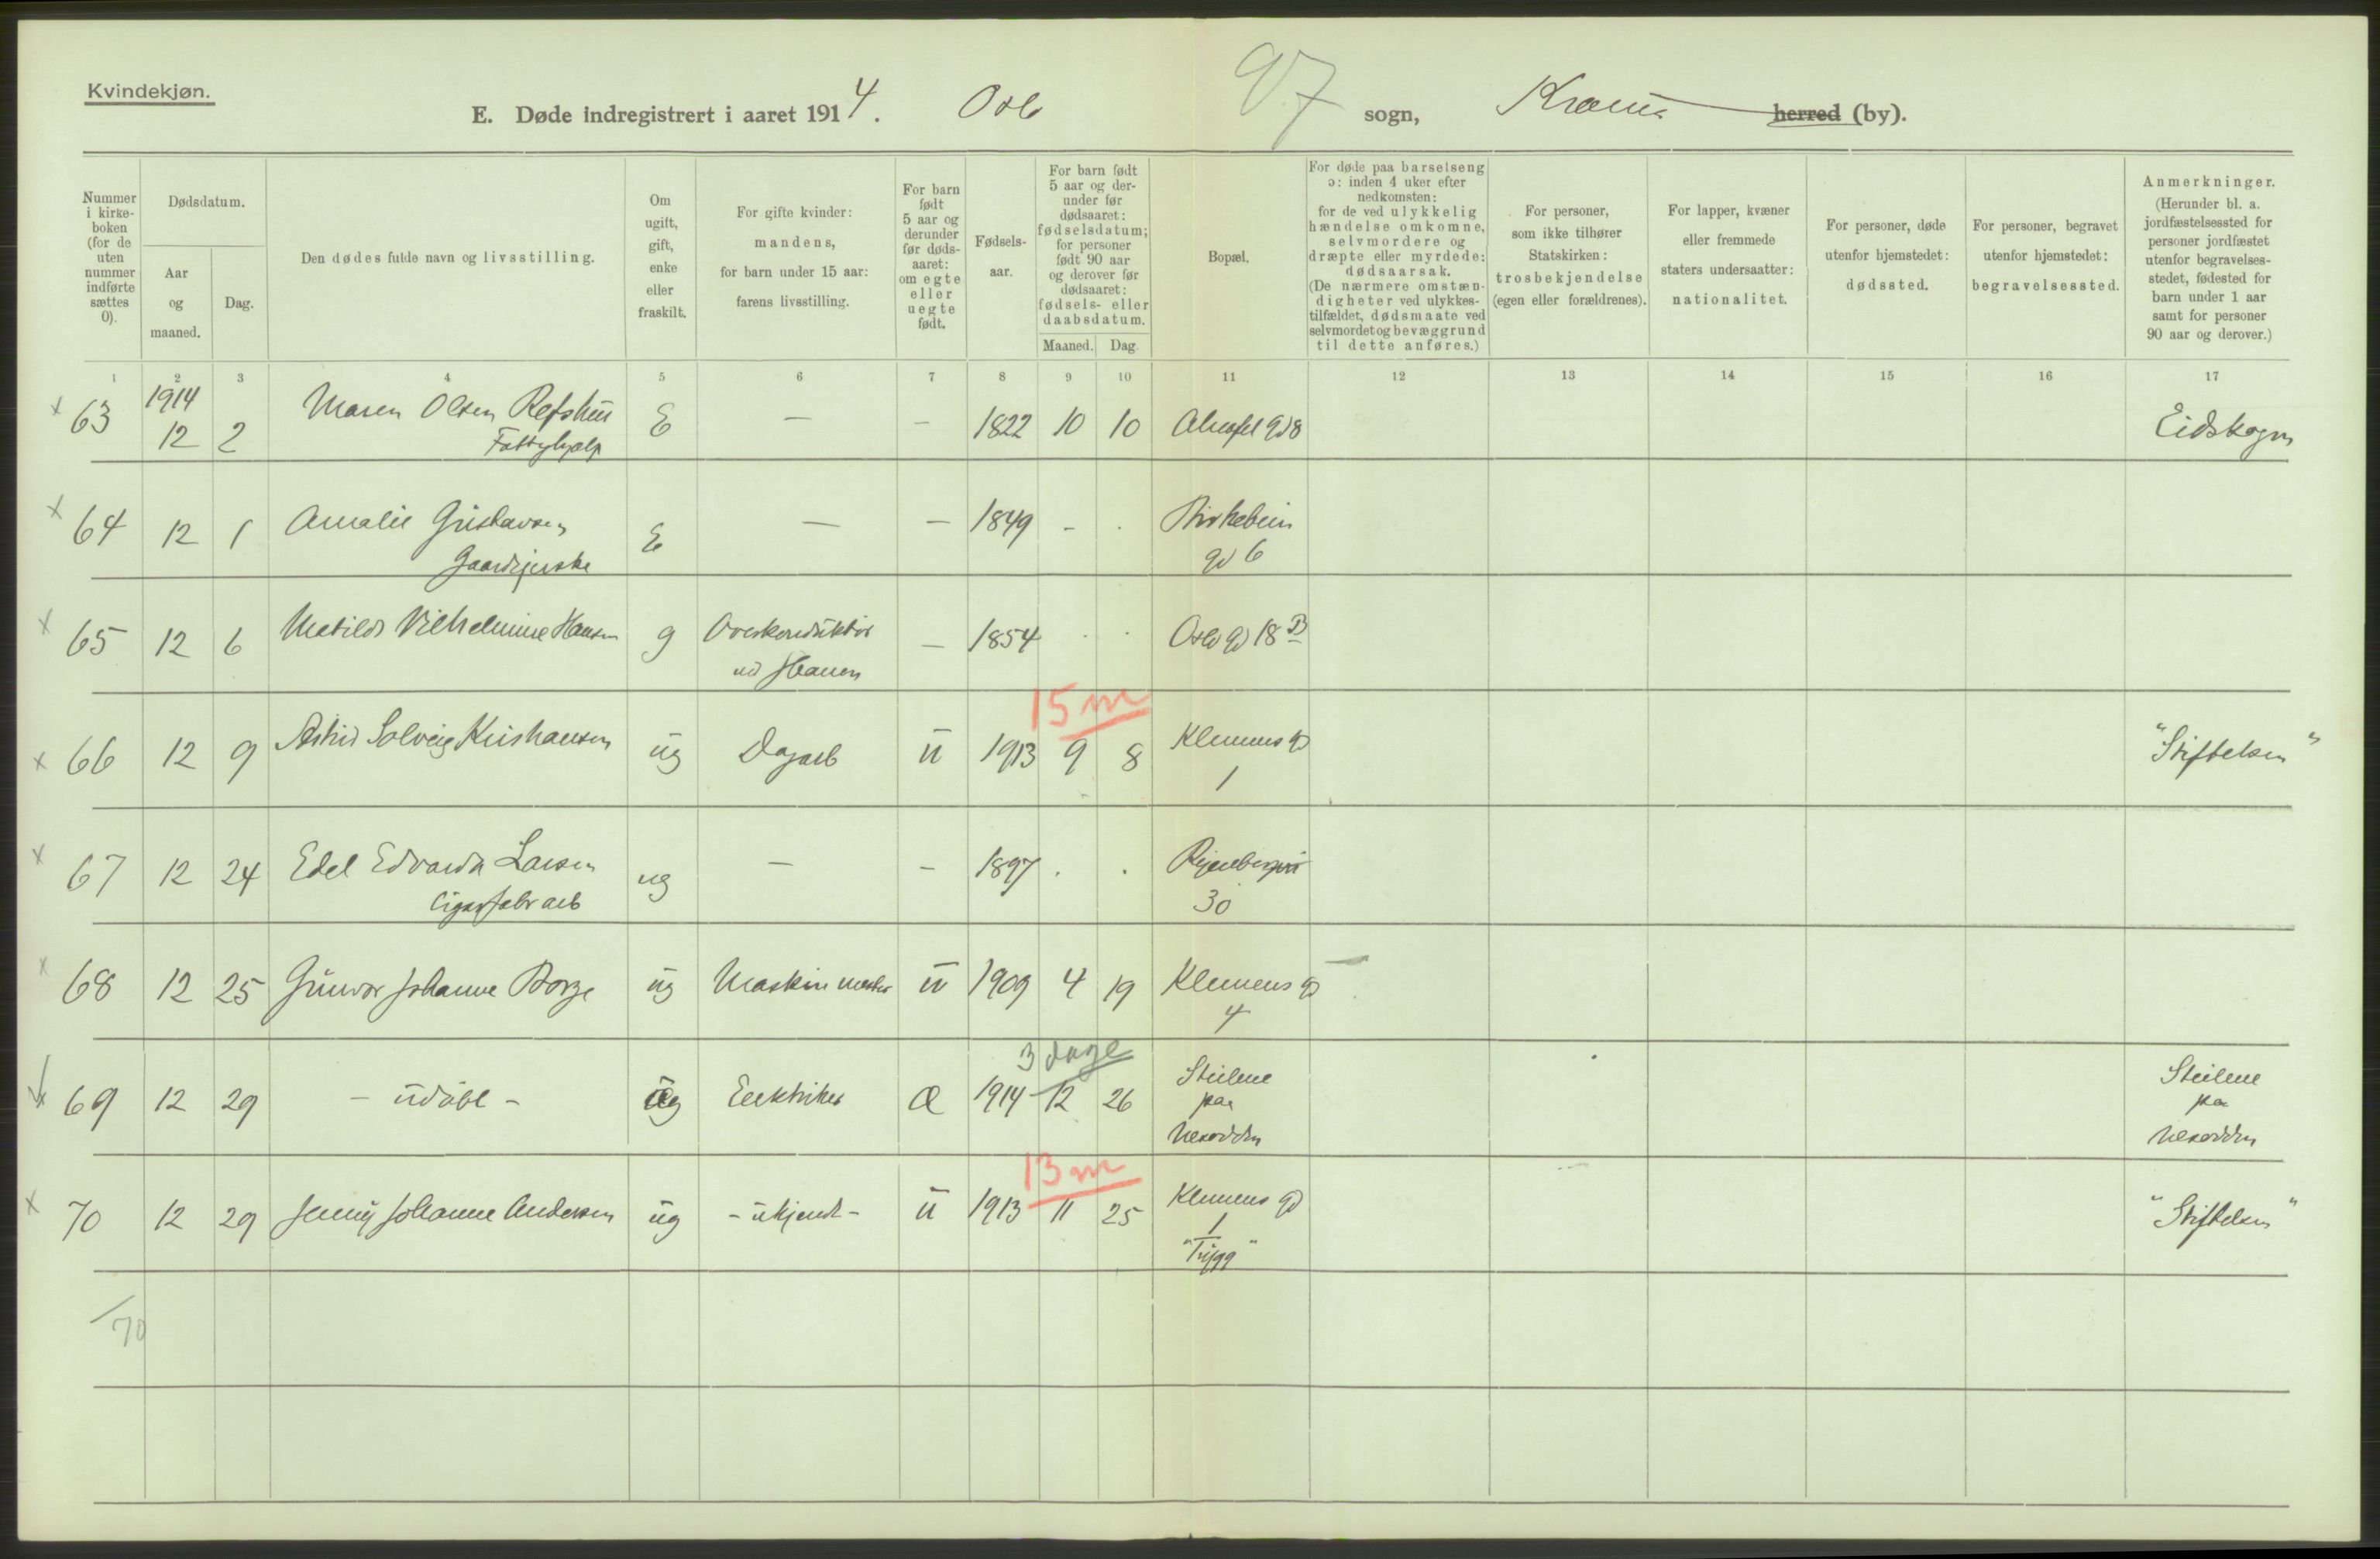 Kvindekjøn.
97
E. Døde indregistrert i aaret 1914. Oslo sogn, Krania herred (by).
Nummer i kirkeboken (for de uten nummer indførte sættes 0).
Dødsdatum.
Aar og maaned.
Dag.
Den dødes fulde navn og livsstilling.
Om ugift, gift, enke eller fraskilt.
For gifte kvinder: mandens, for barn under 15 aar: farens livsstilling.
For barn født 5 aar og derunder før dødsaaret: om egte eller uegte født.
Fødselsaar.
For barn født 5 aar og derunder før dødsaaret: fødselsdatum; for personer født 90 aar og derover før dødsaaret: fødsels- eller daabsdatum.
Maaned. Dag.
Bopæl.
For døde paa barselseng ɔ: inden 4 uker efter nedkomsten: for de ved ulykkelig hændelse omkomne, selvmordere og dræpte eller myrdede: dødsaarsak. (De nærmere omstændigheter ved ulykkestilfældet, dødsmaate ved selvmordet og bevæggrund til dette anføres.)
For personer, som ikke tilhører Statskirken: trosbekjendelse (egen eller forældrenes).
For lapper, kvæner eller fremmede staters undersaatter: nationalitet.
For personer, døde utenfor hjemstedet: dødssted.
For personer, begravet utenfor hjemstedet: begravelsessted.
Anmerkninger. (Herunder bl. a. jordfæstelsessted for personer jordfæstet utenfor begravelsesstedet, fødested for barn under 1 aar samt for personer 90 aar og derover.)
1 2 3 4 5 6 7 8 9 10 11 12 13 14 15 16 17
1914
x 63 12 2 Maren Olsen Refshus E — — 1822 10 10 gd 8 Eidskogen
Fattighjælp
x 64 12 1 Amalie Gustavsen E — — 1849 - . Birkebein
Gaardejerske gd 6
x 65 12 6 Matilde Vilhelmine Hansen g Overkonduktør — 1854 . . Oslo gd 18 B
15 m
x 66 12 9 Astrid Solveig Kristiansen ug Dagarb u 1913 9 8 Klemens gd "Stiftelsen"
1
x 67 12 24 Edel Edvarda Larsen ug — — 1897 . .
Cigarfabr arb 30
x 68 12 25 Gunvor Johanne Borge ug Maskinmester u 1909 4 19 Klemens gd
4
3 dage
x 69 12 29 – udøbt – ug Elektriker Æ 1914 12 26 Steilene paa Nesodden Steilene paa Nesodden
13 m
x 70 12 29 Jenny Johanne Andersen ug – ukjendt – u 1913 11 25 Klemens gd "Stiftelsen"
1
"Trygg"
/70